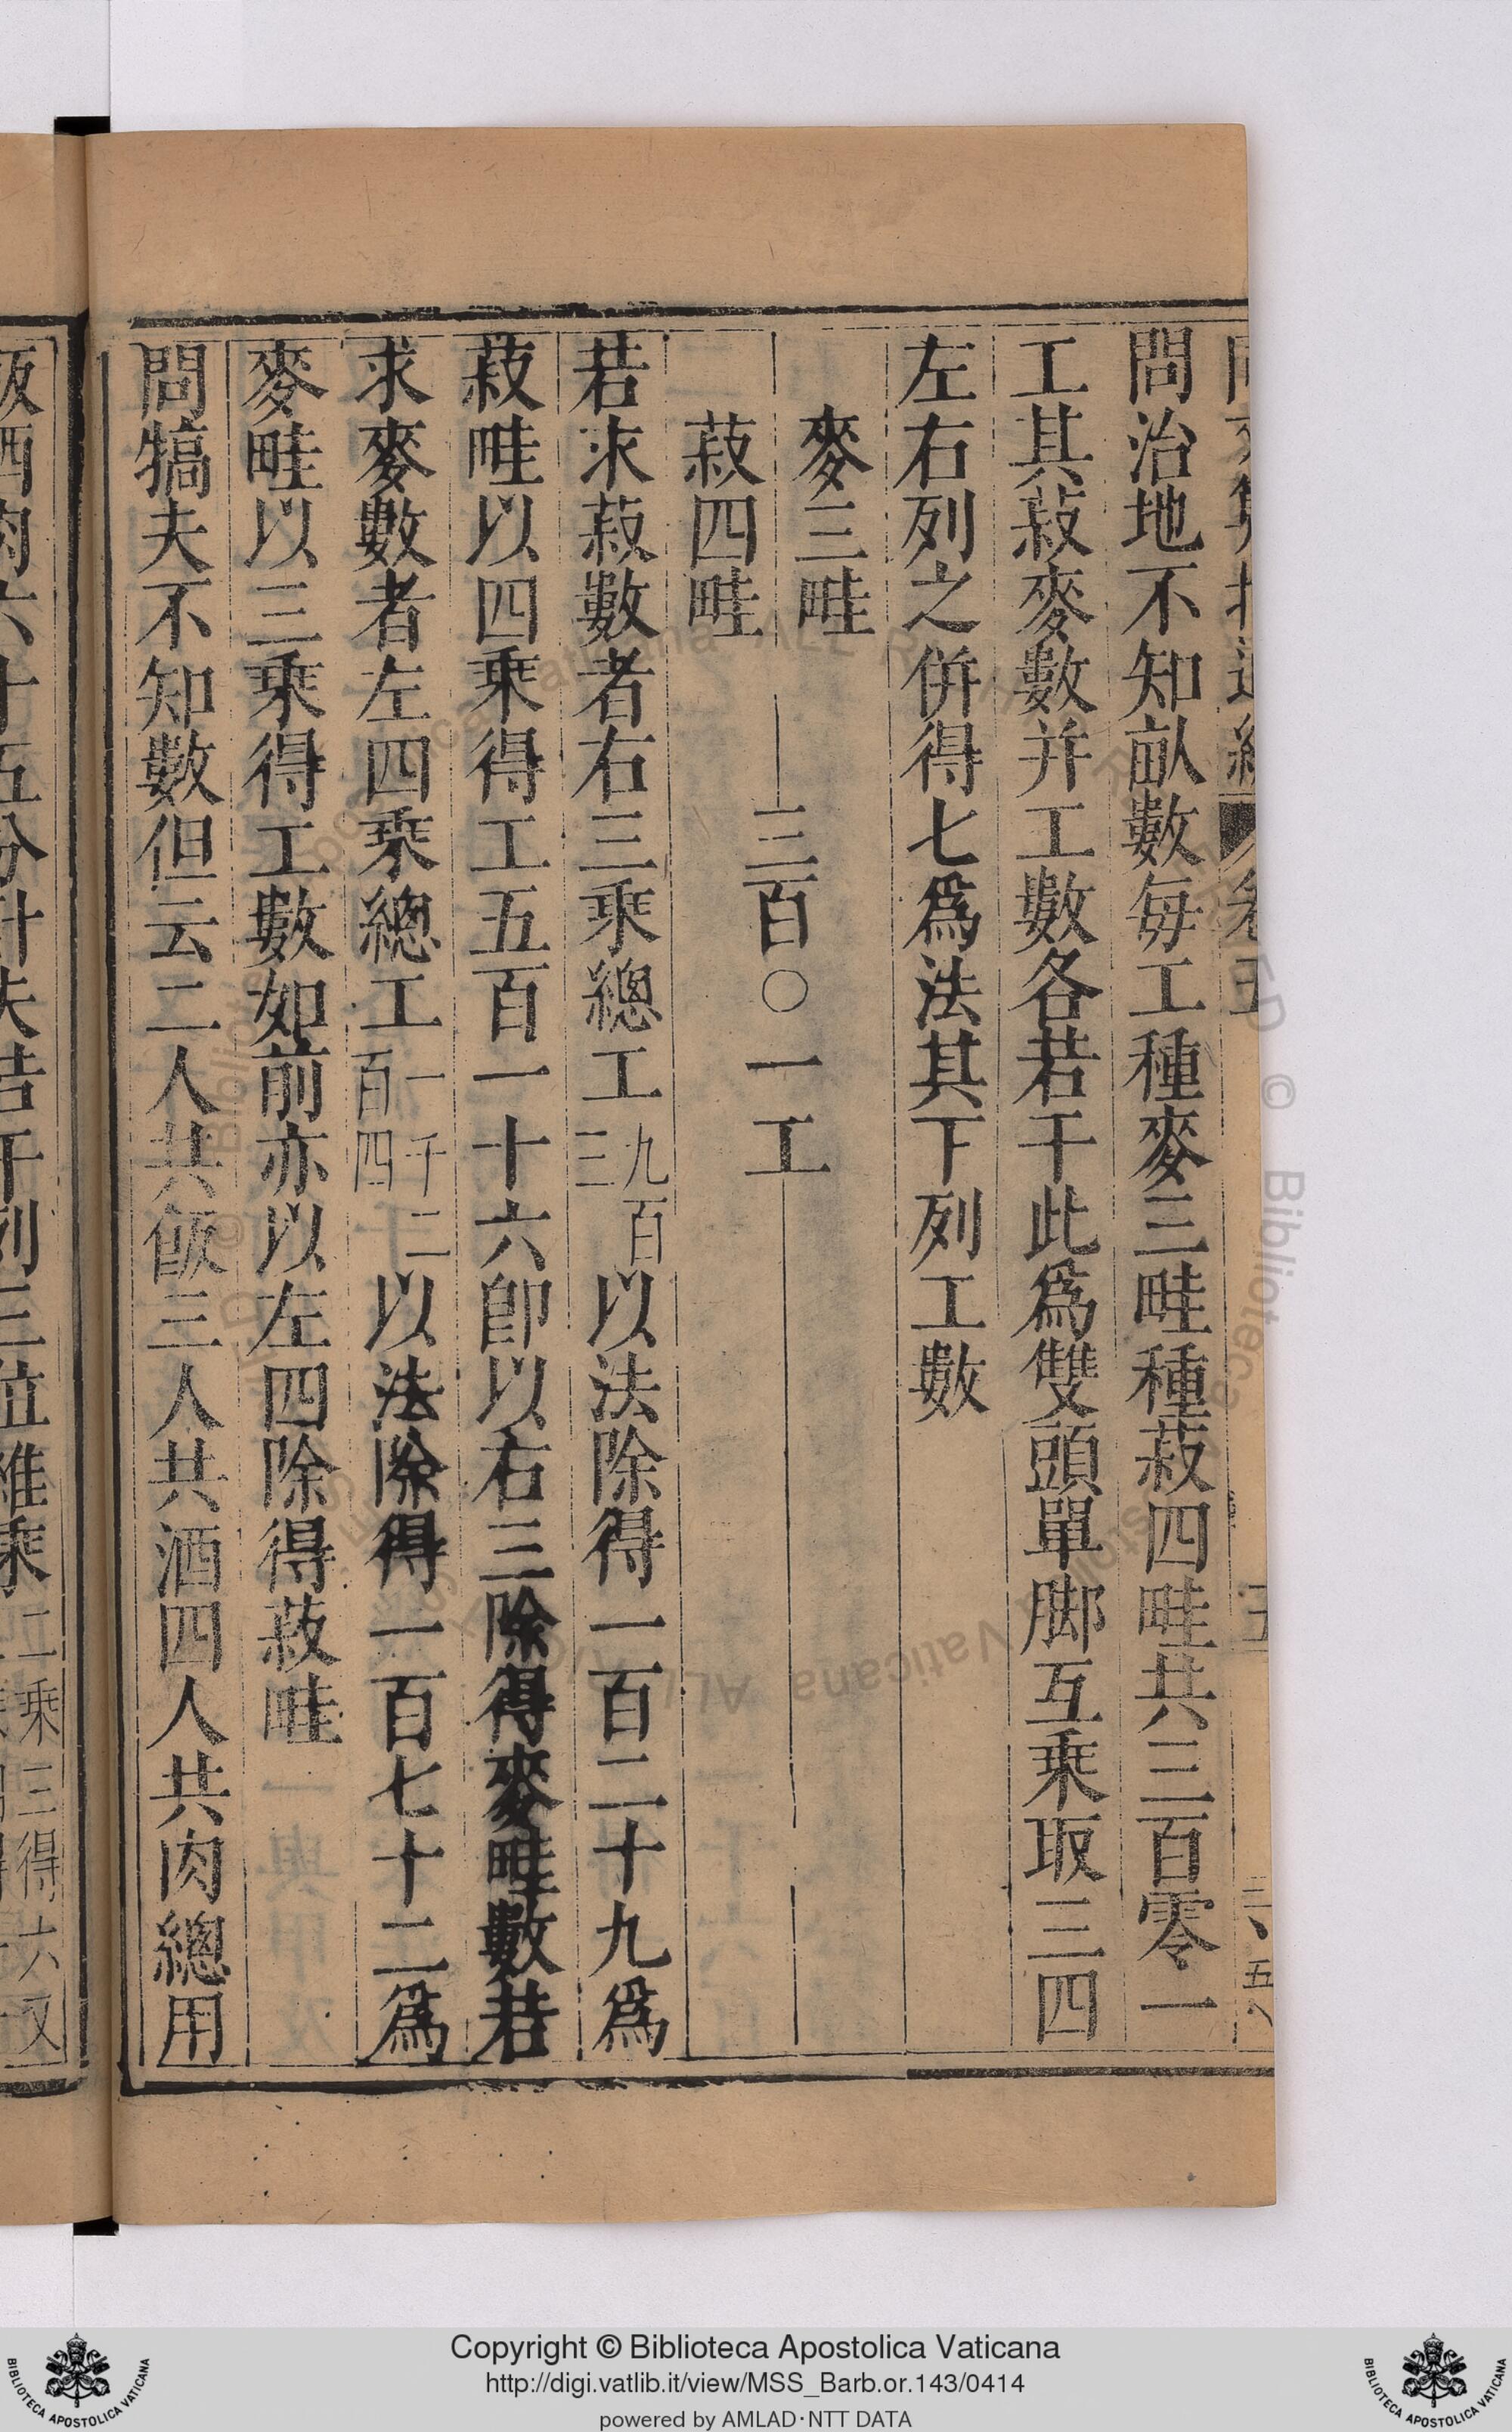 問治地不知畝數每工種麥三畦種菽四畦共三百零一
工其菽麥數并工數各若干此爲雙頭單脚互乘取三四
左右列之併得七爲法其下列工數
麥三畦
三百〇一工
菽四畦
若求菽數者右三乘總工九百三以法除得一百二十九爲
菽畦以四乘得工五百一十六卽以右三除得麥畦數若
求麥數者左四乘總工一千二百四以法除得一百七十二爲
麥畦以三乘得工數如前亦以左四除得菽畦
問犒夫不知數但云二人共飯三人共酒四人共肉總用
Copyright © Biblioteca Apostolica Vaticana
http://digi.vatlib.it/view/MSS_Barb.or.143/0414
powered by AMLAD·NTT DATA
BIBLIOTECA APOSTOLICA VATICANA
BIBLIOTECA APOSTOLICA VATICANA